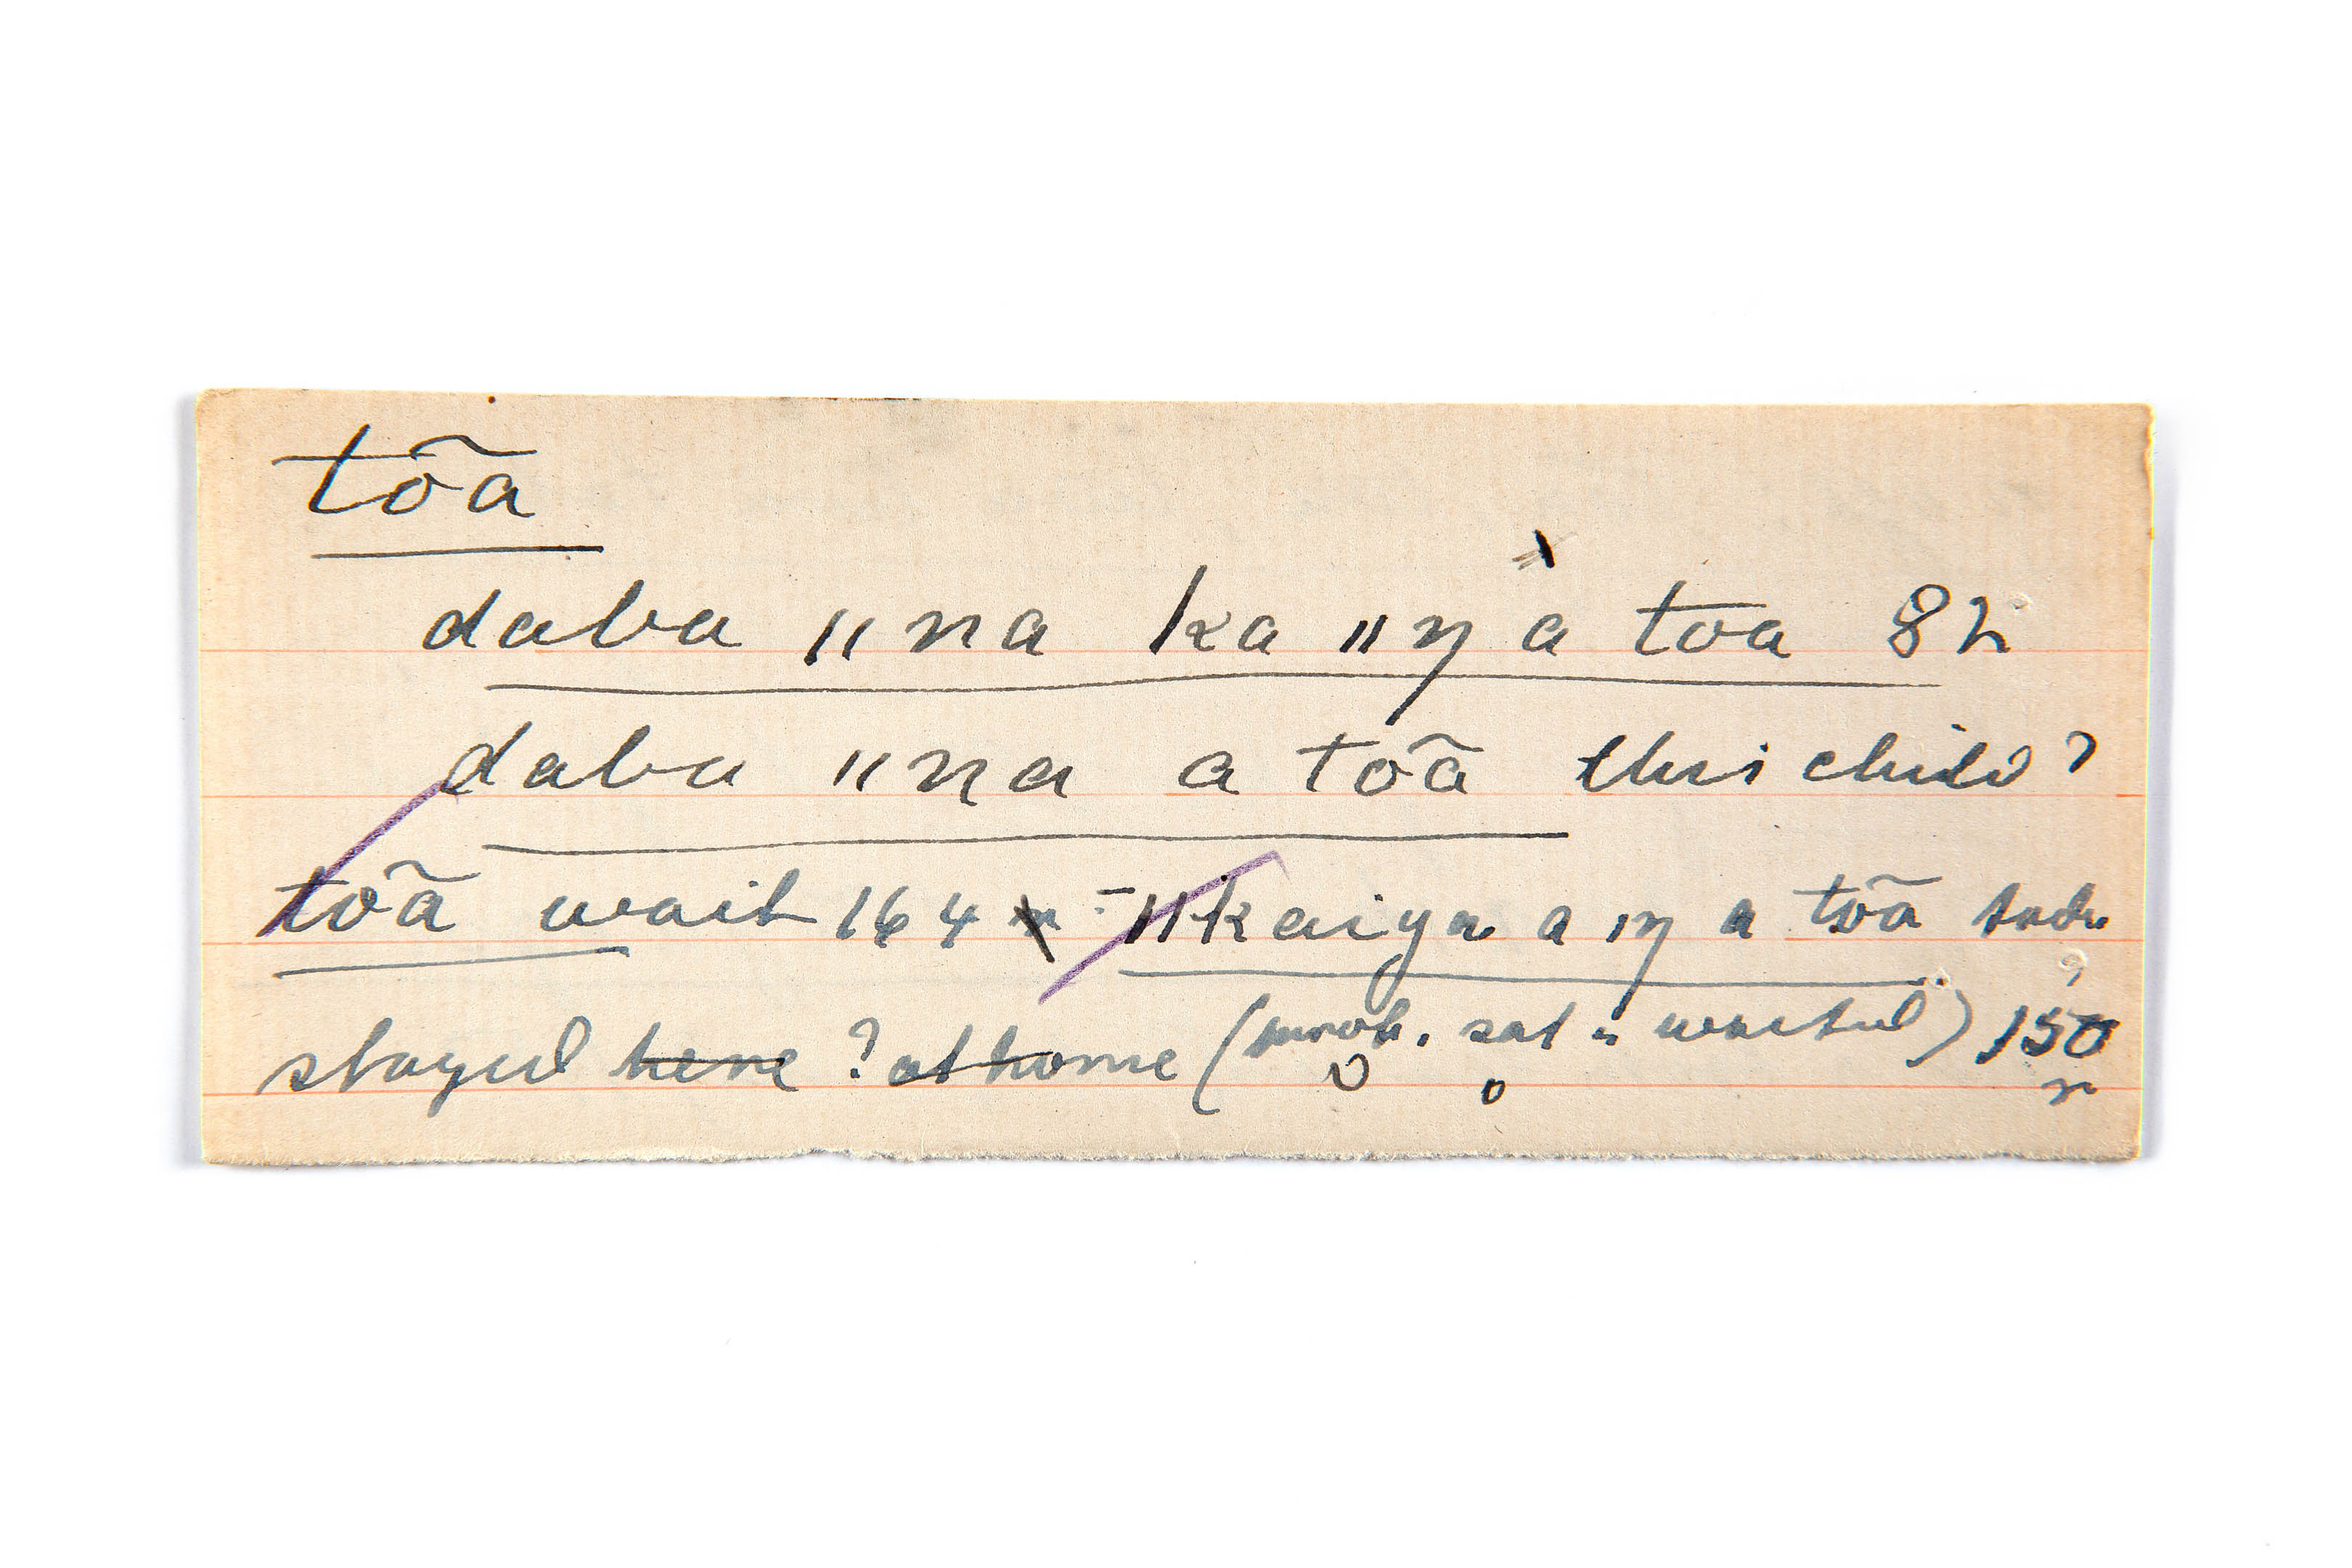 tõa
daba ǁna ka ǁŋ a toa 82
daba ǁna a tõa this child?
tõa wait 164 ǁkaiya a ıŋ a tõa
stayed here ? at home (prob. sat = waited) 150
n